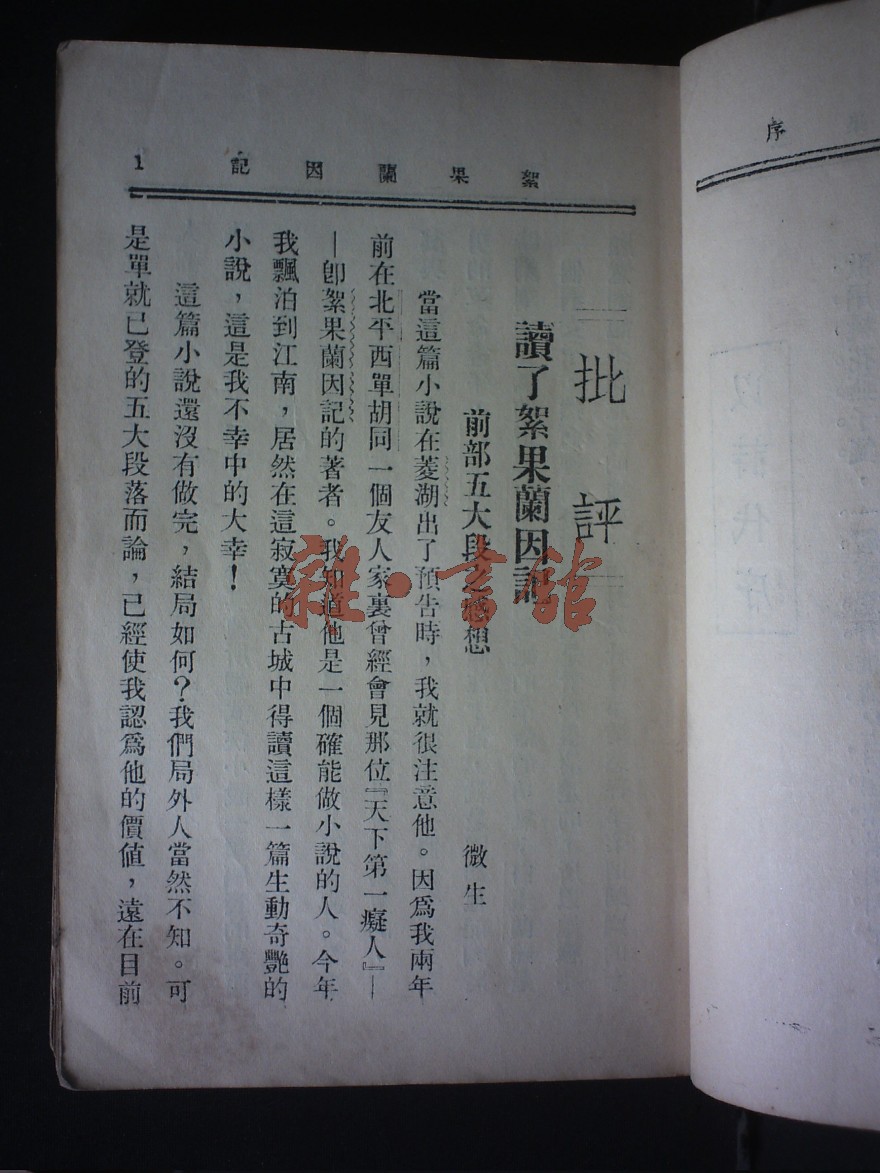 序
絮果蘭因記
1
批評
讀了絮果蘭因記
前部五大段之感想
微生
當這篇小說在菱湖出了預告時，我就很注意他。因爲我兩年
前在北平西單胡同一個友人家裏曾經會見那位『天下第一癡人』—
—卽絮果蘭因記的著者。我知道他是一個確能做小說的人。今年
我飄泊到江南，居然在這寂寞的古城中得讀這樣一篇生動奇艷的
小說，這是我不幸中的大幸！
這篇小說還沒有做完，結局如何？我們局外人當然不知。可
是單就已登的五大段落而論，已經使我認爲他的價値，遠在目前
雜·書館